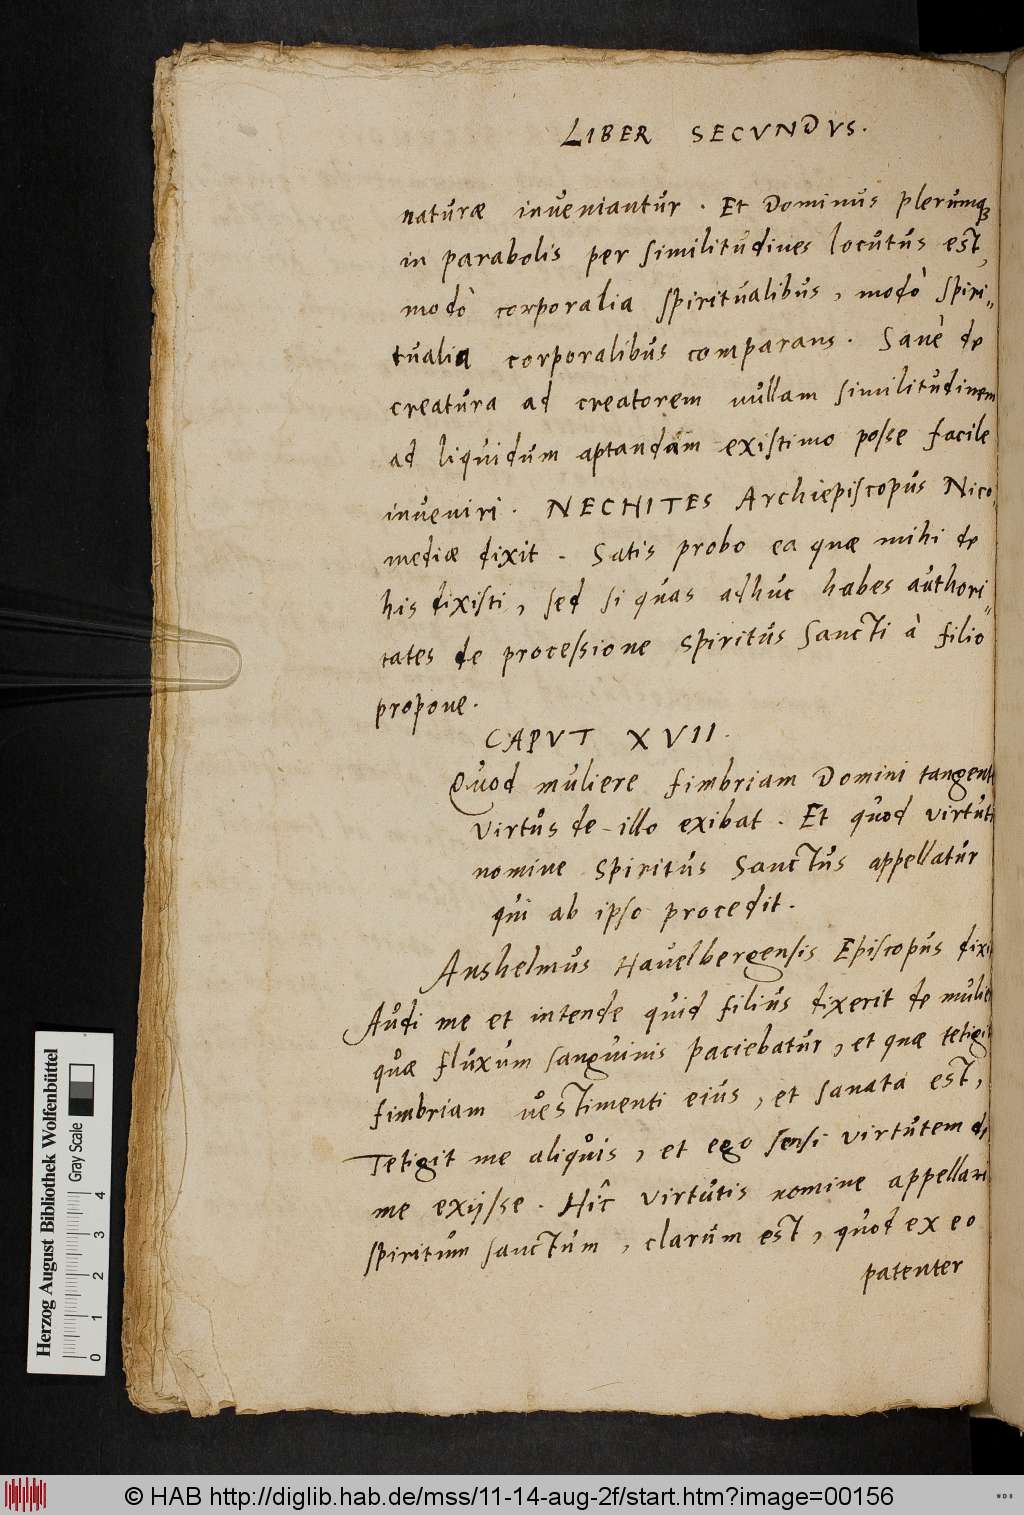 LIBER SECVNDVS.
naturæ inveniantur. Et Dominus plerumq3
in parabolis per similitudines locutus est,
modò corporalia spiritualibus, modò spiri=
tualia corporalibus comparans. Sanè de
creatura ad creatorem nullam similitudinem
ad liquidum aptandam existimo posse facile
inveniri. NECHITES Archiepiscopus Nico
mediæ dixit. Satis probo ea quæ mihi de
his dixisti, sed si quas adhuc habes authori=
tates de processione Spiritus Sancti à filio
propone.
CAPVT XVII.
Quod muliere fimbriam Domini tangent
virtus de illo exibat. Et quod virtuti
nomine Spiritus Sanctus appellatur
qui ab ipso procedit.
Anshelmus Havelbergensis Episcopus dixi
Audi me et intende quid filius dixerit de mulie
quæ fluxum sanguinis paciebatur, et quæ tetigit
fimbriam vestimenti eius, et sanata est,
Tetigit me aliquis, et ego sensi virtutem de
me exijsse. Hîc virtutis nomine appellari
spiritum sanctum, clarum est, quod ex eo
patenter
Herzog August Bibliothek Wolfenbüttel
Gray Scale
0 1 2 3 4
© HAB http://diglib.hab.de/mss/11-14-aug-2f/start.htm?image=00156